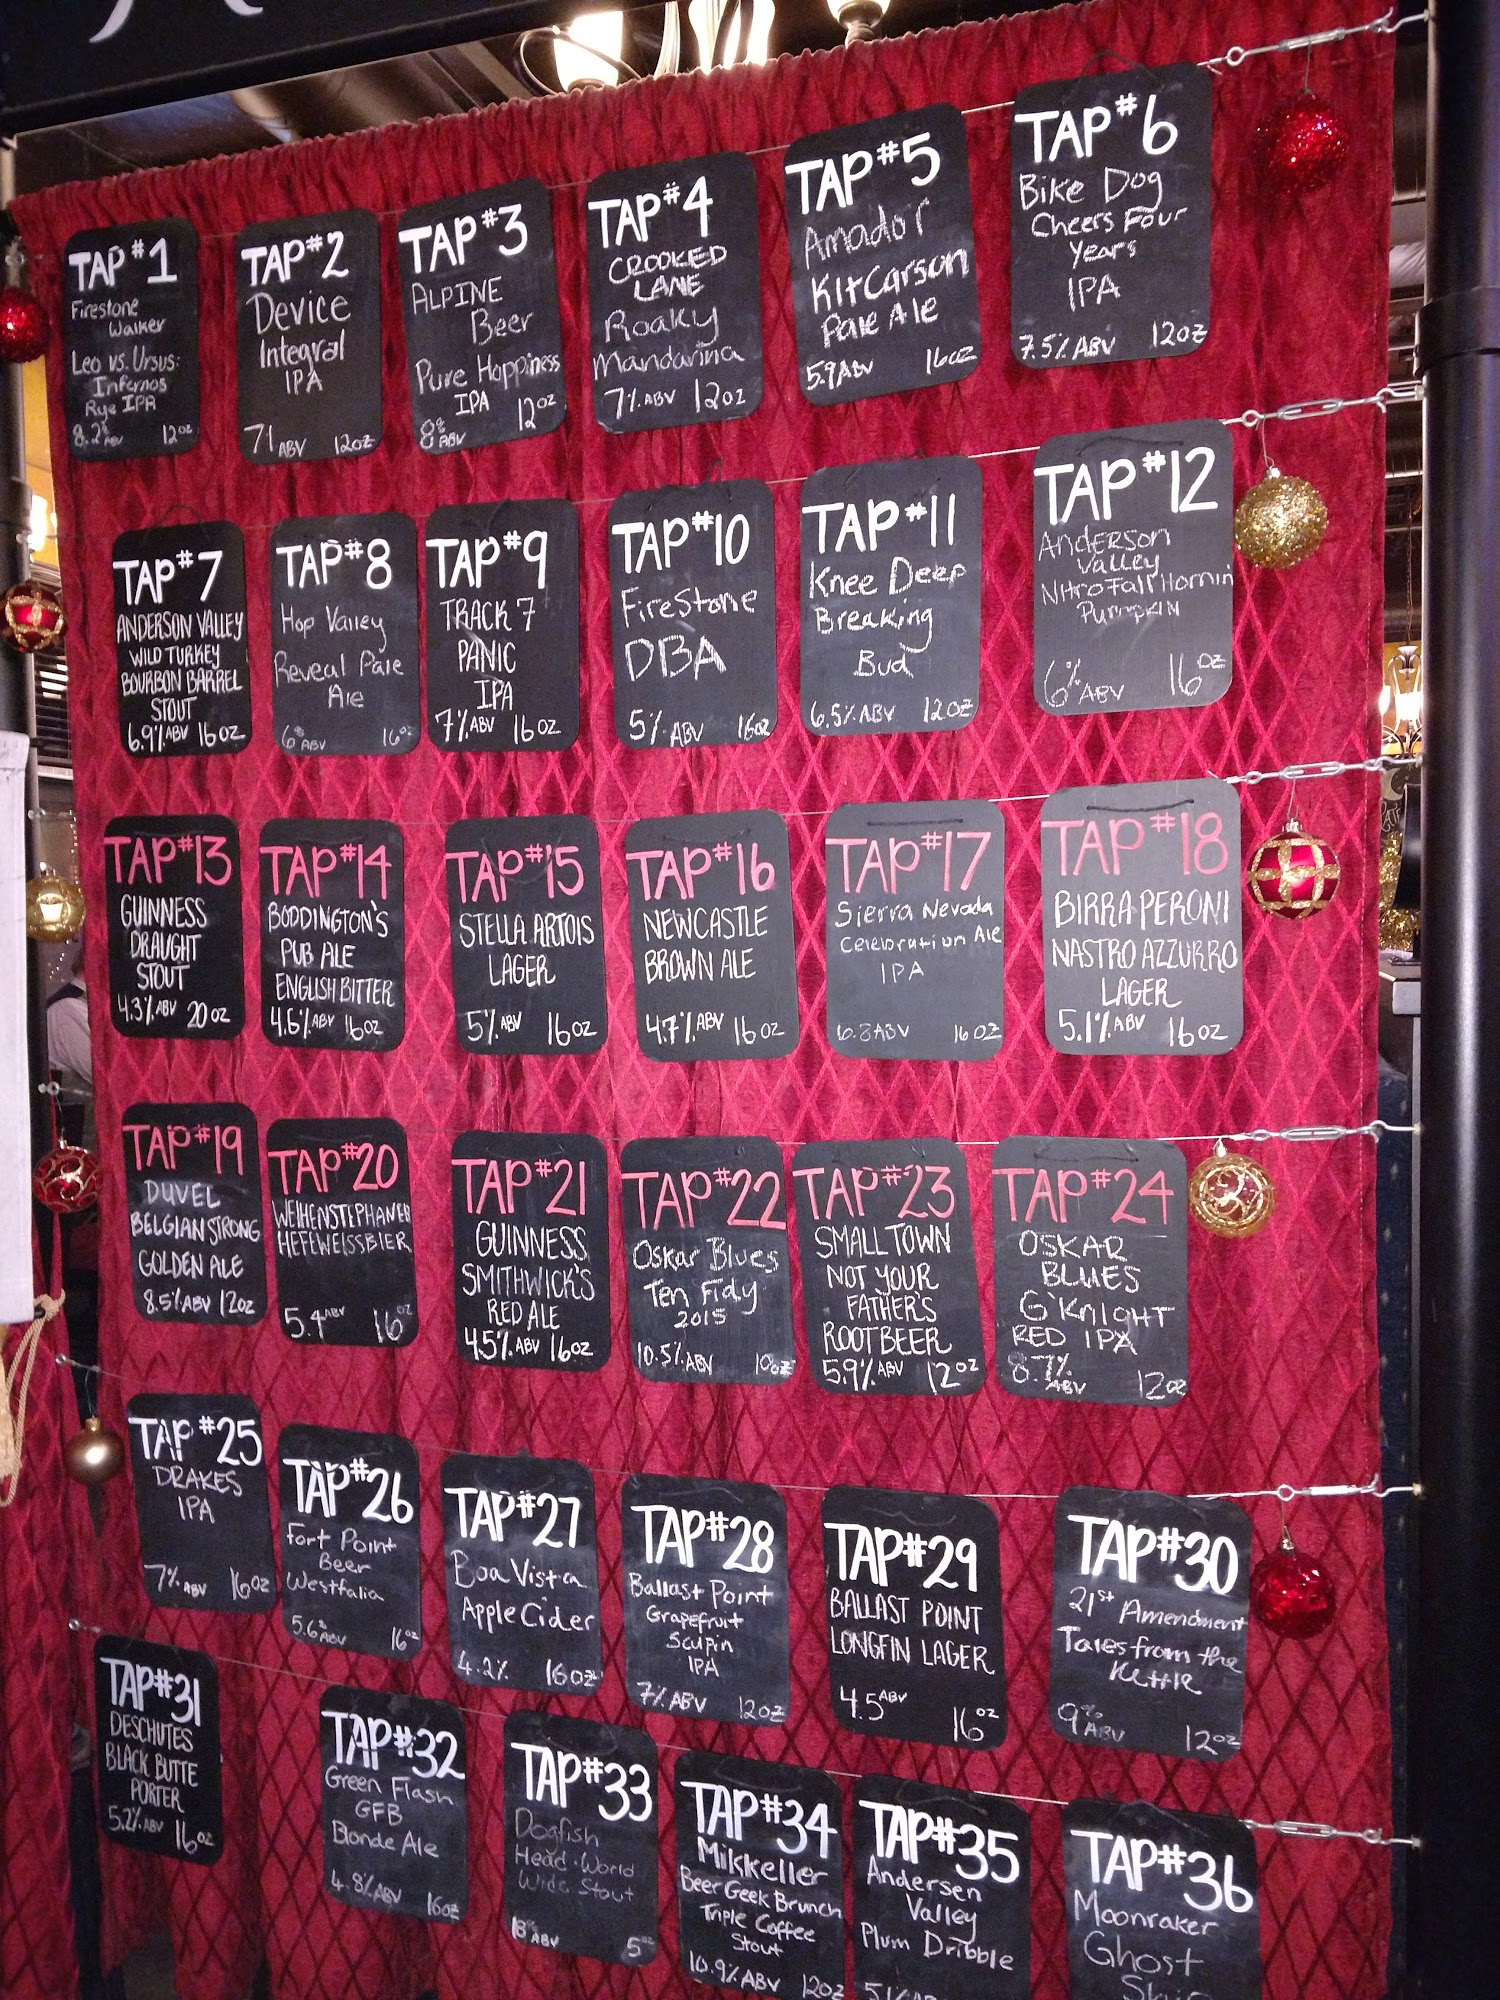 TAP #1
Firestone
Walker
Leo vs. Ursus:
Infernos
Rye IPA
8.2% ABV 12oz
TAP #2
Device
Integral
IPA
71 ABV 12oz
TAP #3
ALPINE
Beer
Pure Hoppiness
IPA 12oz
8% ABV
TAP #4
CROOKED
LANE
Roaky
Mandarina
7% ABV 12oz
TAP #5
Amador
Kit Carson
Pale Ale
5.9 ABV 16oz
TAP #6
Bike Dog
Cheers Four
Years
IPA
7.5% ABV 12oz
TAP #7
ANDERSON VALLEY
WILD TURKEY
BOURBON BARREL
STOUT
6.9% ABV 16oz
TAP #8
Hop Valley
Reveal Pale
Ale
6% ABV 16oz
TAP #9
TRACK 7
PANIC
IPA
7% ABV 16oz
TAP #10
FireStone
DBA
5% ABV 16oz
TAP #11
Knee Deep
Breaking
Bud
6.5% ABV 12oz
TAP #12
Anderson
Valley
Nitro Fall Hornin
Pumpkin
6% ABV 16oz
TAP #13
GUINNESS
DRAUGHT
STOUT
4.3% ABV 20oz
TAP #14
BODDINGTON'S
PUB ALE
ENGLISH BITTER
4.6% ABV 16oz
TAP #15
STELLA ARTOIS
LAGER
5% ABV 16oz
TAP #16
NEWCASTLE
BROWN ALE
4.7% ABV 16oz
TAP #17
Sierra Nevada
Celebration Ale
IPA
6.8 ABV 16oz
TAP #18
BIRRA PERONI
NASTRO AZZURRO
LAGER
5.1% ABV 16oz
TAP #19
DUVEL
BELGIAN STRONG
GOLDEN ALE
8.5% ABV 12oz
TAP #20
WEIHENSTEPHANER
HEFEWEISSBIER
5.4 ABV 16oz
TAP #21
GUINNESS
SMITHWICK'S
RED ALE
4.5% ABV 16oz
TAP #22
Oskar Blues
Ten Fidy
2015
10.5% ABV 10oz
TAP #23
SMALL TOWN
NOT YOUR
FATHER'S
ROOT BEER
5.9% ABV 12oz
TAP #24
OSKAR
BLUES
G'KNIGHT
RED IPA
8.7%
ABV 12oz
TAP #25
DRAKES
IPA
7% ABV 16oz
TAP #26
Fort Point
Beer
Westfalia
5.6% ABV 16oz
TAP #27
Boa Vista
Apple Cider
4.2% 16oz
TAP #28
Ballast Point
Grapefruit
Sculpin
IPA
7% ABV 12oz
TAP #29
BALLAST POINT
LONGFIN LAGER
4.5 ABV 16oz
TAP #30
21st Amendment
Tales from the
Kettle
9% ABV 12oz
TAP #31
DESCHUTES
BLACK BUTTE
PORTER
5.2% ABV 16oz
TAP #32
Green Flash
GFB
Blonde Ale
4.8% ABV 16oz
TAP #33
Dogfish
Head World
Wide Stout
18% ABV 5oz
TAP #34
Mikkeller
Beer Geek Brunch
Triple Coffee
Stout
10.9% ABV 12oz
TAP #35
Andersen
Valley
Plum Dribble
51 ABV
TAP #36
Moonraker
Ghost